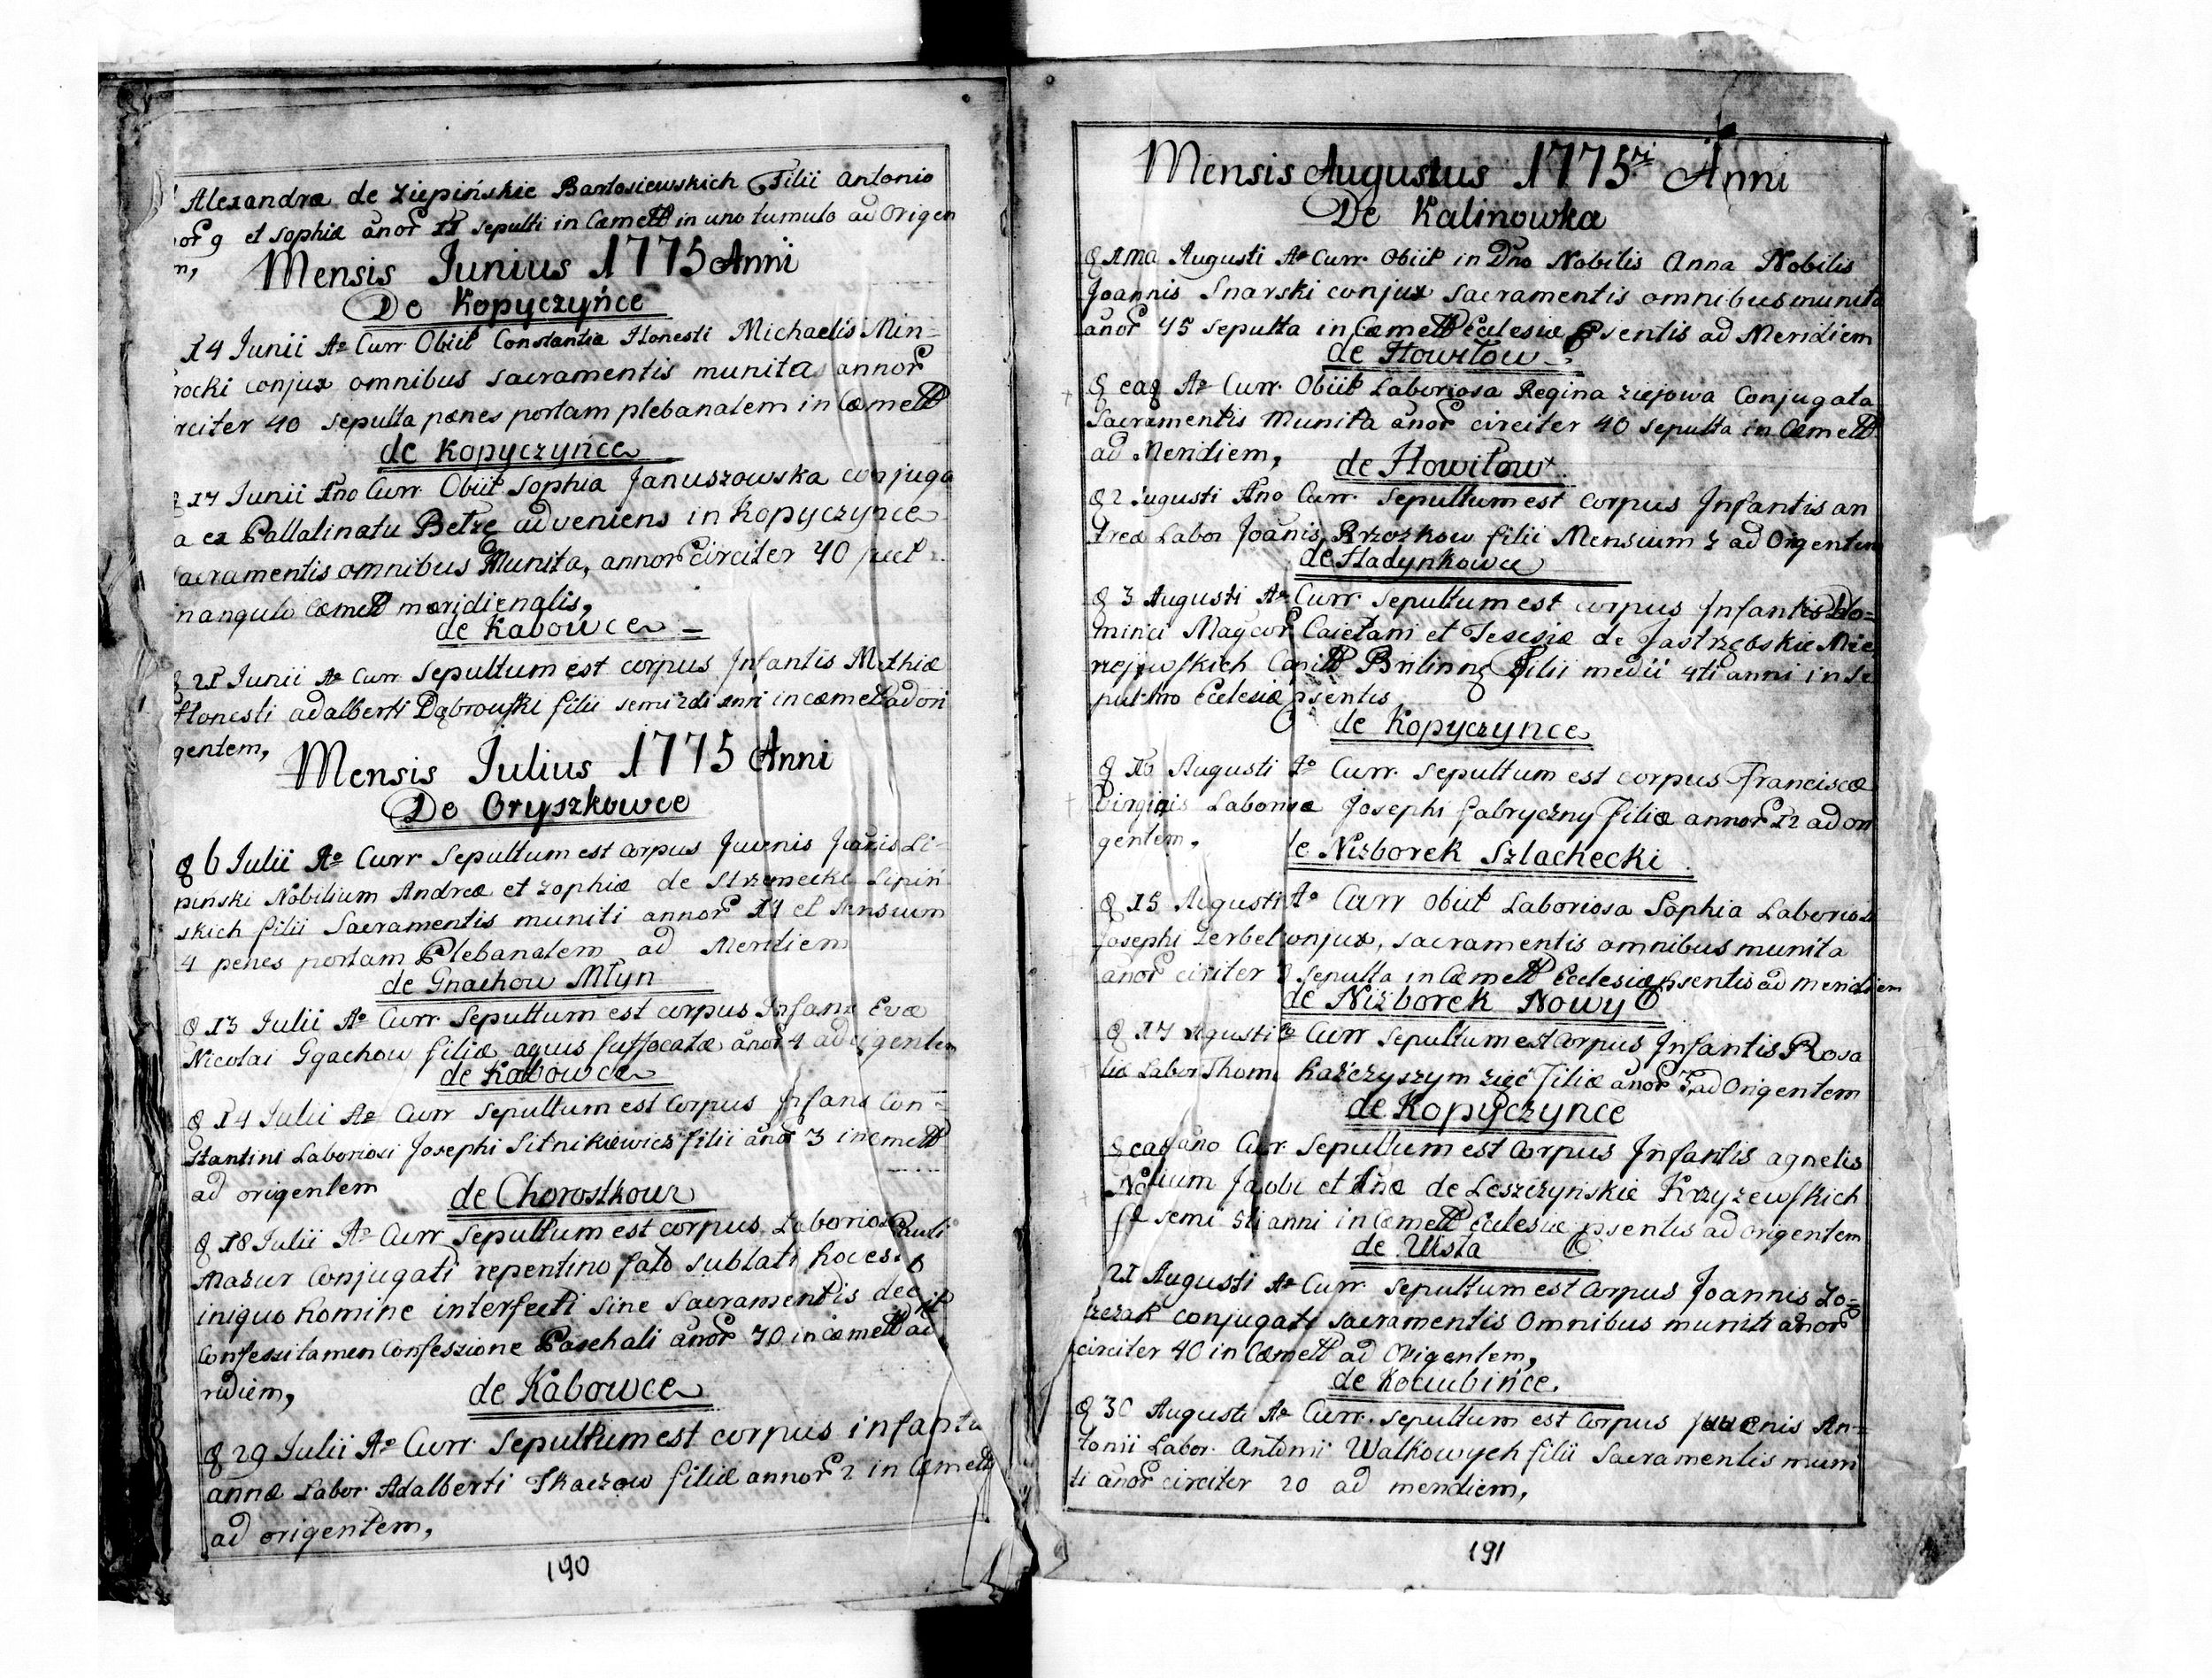 Alexandræ de Ziepińskie Bartosiewskich Filii Antonio
nor 9 et Sophiæ anor 11 sepulti in Cæmett in uno tumulo ad Origen
m,
Mensis Junius 1775 Anni
De Kopyczyńce
14 Junii Ao Curr Obiit Constantia Honesti Michaelis Min=
rocki conjux omnibus sacramentis munita annor
rciter 40 sepulta pænes portam plebanalem in Cæmett
de Kopyczyńce
17 Junii Ano Curr. Obiit Sophia Januszowska conjuga
a ex Pallatinatu Belze adveniens in Kopyczynce
acramentis omnibus Munita, annor circiter 40
in angulo Cæmett meridienalis,
de Kabowce
21 Junii Ao Curr Sepultum est corpus Infantis Mathiæ
Honesti adalberti Dąbrowski filii semi 2di anni in cæmett ad ori
gentem,
Mensis Julius 1775 Anni
De Oryszkowce
8 6 Julii Ao Curr Sepultum est corpus Juvenis Joanis Li-
pinski Nobilium Andreæ et Zophiæ de Strzemeckie Lipiń
skich filii Sacramentis muniti annor 14 et Mensium
4 penes portam Plebanalem ad Meridiem
de Gnachow Młyn
8 13 Julii Ao Curr Sepultum est corpus Infans Evæ
Nicolai Ggachow filiæ aquis suffocatæ anor 4 ad rigentem
de Kabowce
8 14 Julii Ao Curr Sepultum est Corpus Infans Con=
stantini Laboriosi Josephi Sitnikiewicz filii anor 3 in cmett
ad origentem
de Chorostkow
8 18 Julii Ao Curr Sepultum est corpus Laboriosi Pauli
Mazur Conjugati repentino fato sublati hoc est
iniquo homine interfecti sine Sacramentis
Confessi tamen Confessione Paschali anor 70 in cæmett ad
ridiem,
de Kabowce
8 29 Julii Ao Curr. Sepultum est corpus infantis
annæ Labor Adalberti Tkaczow filiæ annor 2 in Cæmett
ad origentem,
190
Mensis Augustus 1775ti Anni
De Kalinowka
8 1ma Augusti Ao Curr. Obiit in Dno Nobilis Anna Nobilis
Joannis Snarski conjux Sacramentis omnibus munita
anor 45 sepulta in Cæmett Eclesiæ psentis ad Meridiem
de Howiłow
8 eaq Ao Curr. Obiit Laboriosa Regina Ziejowa Conjugata
Sacramentis Munita anor circiter 40 sepulta in Cæmett
ad Meridiem,
de Howiłow
8 2 Augusti Ano Curr. Sepultum est Corpus Infantis an
dreæ Labor Joanis Brzozkow filii Mensium 3 ad Origentem
de Hadynkowce
8 3 Augusti Ao Curr Sepultum est corpus Infantis Do=
minici Magcor Caietani et Teresiæ de Jastrzębskie Mie
rzejewskich Filii medii 4ti anni in Se
pulchro Eclesiæ psentis
de Kopyczynce
8 10 Augusti Ao Curr. Sepultum est corpus Franciscæ
Virginis Laboriosi Josephi fabryczny filiæ annor 12 ad ori
gentem,
de Nizborek Szlachecki
8 15 Augusti Ao Curr Obiit Laboriosa Sophia Laboriosi
Josephi Zerbel conjux, sacramentis omnibus munita
anor circiter sepulta in Cæmett Ecclesiæ psentis ad meridiem
de Nizborek Nowy
8 17 Agusti Ao Curr Sepultum est corpus Infantis Rosa
liæ Labor Thom Kaźczyszym zięć filiæ anor 3 ad Origentem
de Kopyczynce
8 eaq ano Cur. Sepultum est Corpus Infantis agnetis
Nolium Jacobi et Anæ de Leszczyńskie Krzyzewskich
semi 5ti anni in Cæmett Ecclesiæ psentis ad origentem
de Uista
21 Augusti Ao Curr. Sepultum est Corpus Joannis Lo=
zezak conjugati sacramentis Omnibus muniti anor
circiter 40 in Cæmett ad Origentem,
de Kociubińce.
8 30 Augusti Ao Curr. Sepultum est Corpus Juvenis An=
tonii Labor. Antonii Walkowych filii Sacramentis muni
ti anor circiter 20 ad meridiem,
191